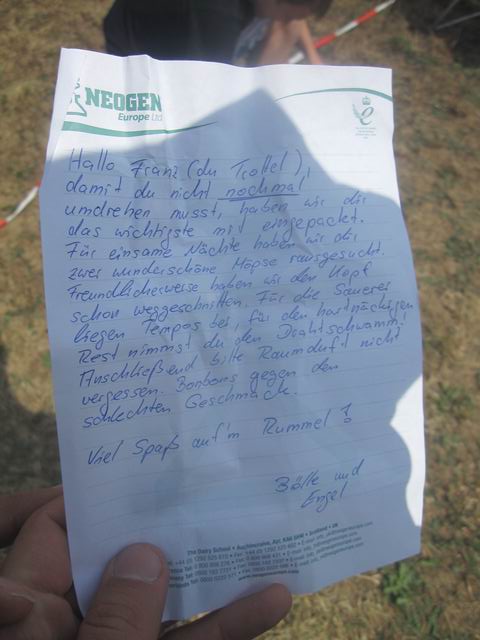 NEOGEN
Europe Ltd
Hallo Franz (du Trottel),
damit du nicht nochmal
umdrehen musst, haben wir dir
das wichtigste mit eingepackt.
Für einsame Nächte haben wir dir
zwei wunderschöne Möpse rausgesucht.
Freundlicherweise haben wir den Kopf
schon weggeschnitten. Für die Sauerei
liegen Tempos bei, für den hartnäckigen
Rest nimmst du den Drahtschwamm.
Anschließend bitte Raumduft nicht
vergessen. Bonbons gegen den
schlechten Geschmack.
Viel Spaß auf'm Rummel!
Bölle und
Engel
The Dairy School • Auchincruive, Ayr, KA6 5HW • Scotland • UK
www.neogeneurope.com